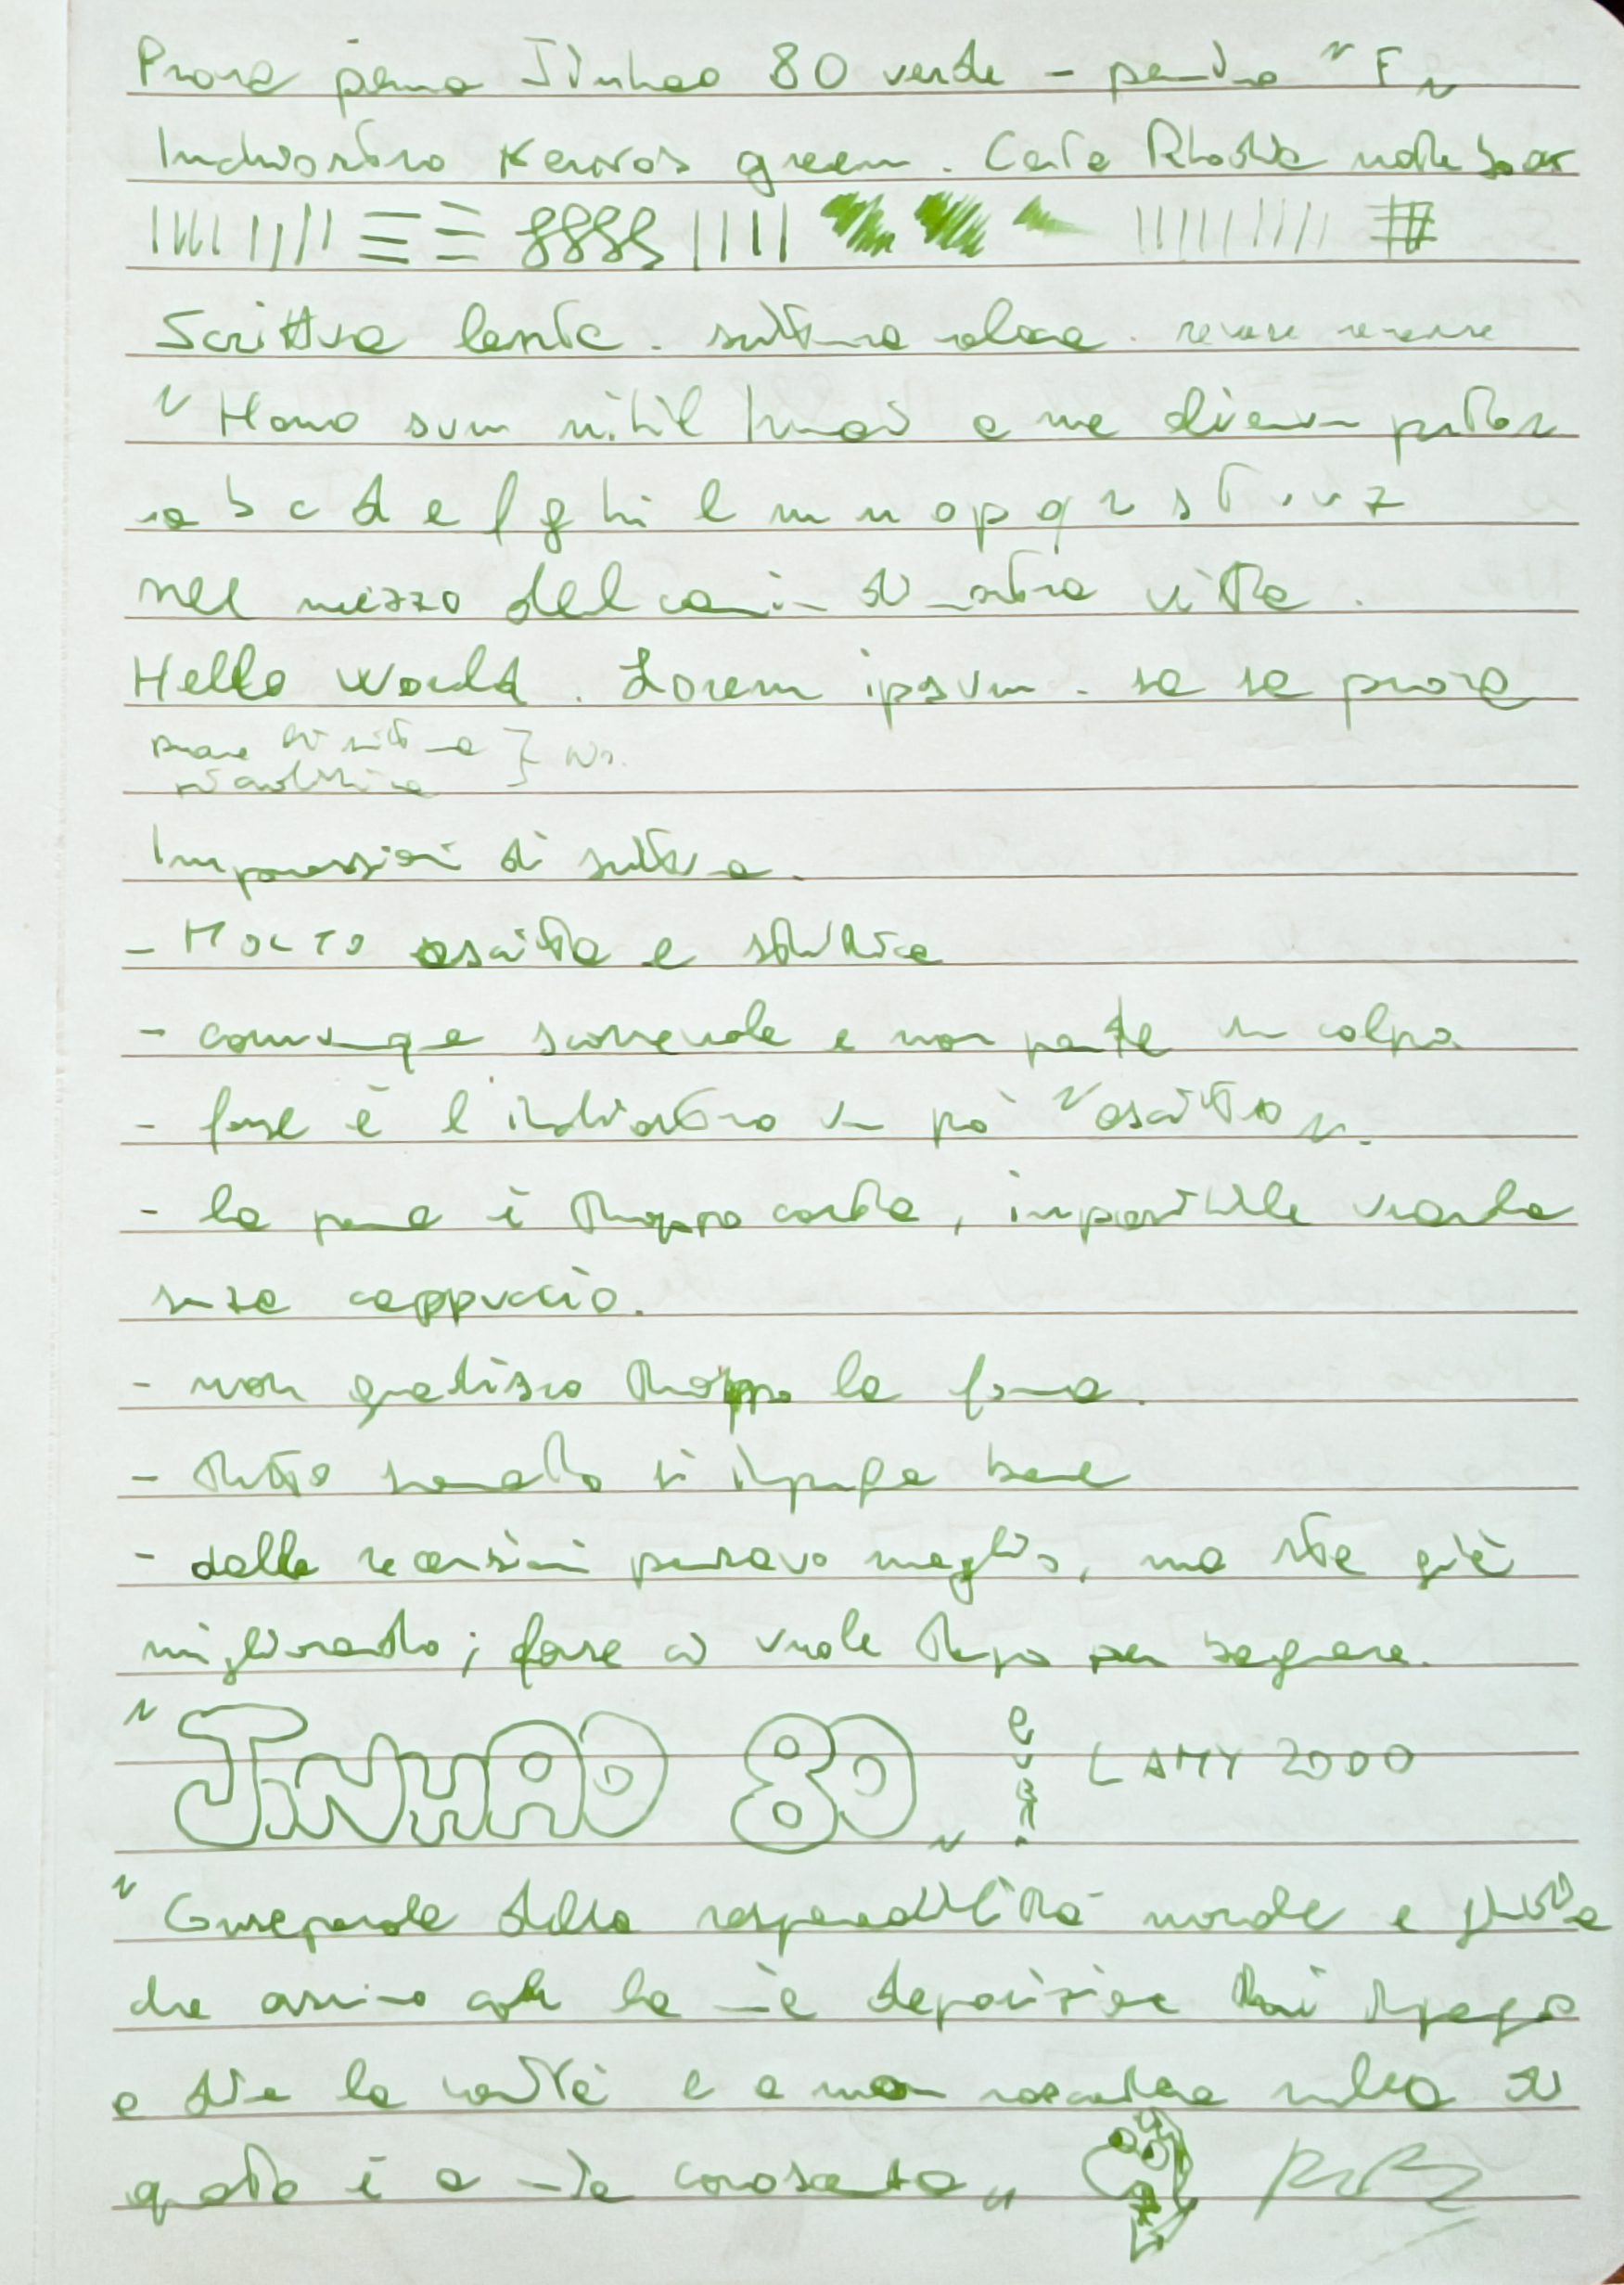 Prova penna Jinhao 80 verde - pennino "F"
Inchiostro Kerros green. Carta Rhodia notebook
Scrittura lenta. scrittura veloce. reverse reverse
"Homo sum nihil humani a me alienum puto"
a b c d e f g h i l m n o p q r s t u v z
nel mezzo del cammin di nostra vita.
Hello World. Lorem ipsum. sa sa prova
prova di scrittura }
Impressioni di scrittura.
- MOLTO asciutta e stitica
- comunque scorrevole e non perde un colpo
- forse è l'inchiostro un po' "asciutto".
- la penna è troppo corta, impossibile usarla
senza cappuccio.
- non gradisco troppo la forma.
- tutto sommato si impugna bene
- dalle recensioni pensavo meglio, ma sta già
migliorando; forse ci vuole tempo per bagnare.
"JINHAO 80" LAMY 2000
"Consapevole della responsabilità morale e giuridica
che assumo con la mia deposizione mi impegno
a dire la verità e a non nascondere nulla di
quanto è a mia conoscenza"